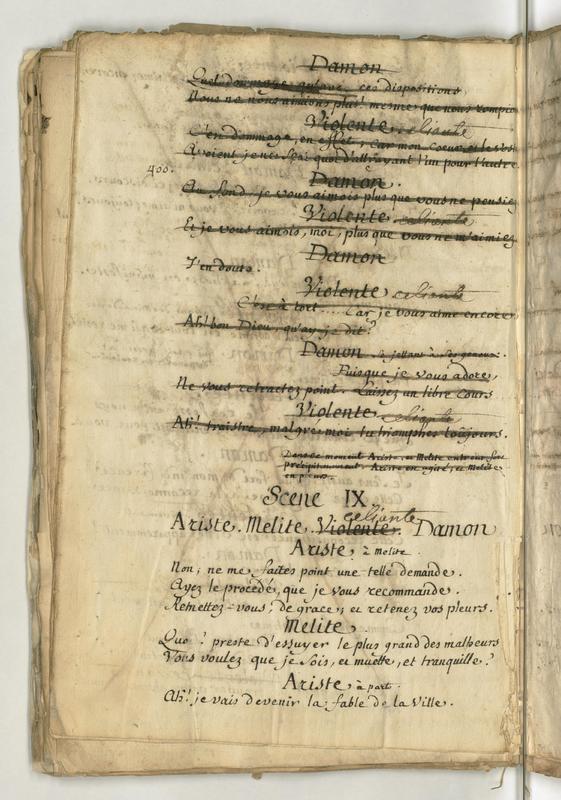 Damon
Quel dommage qu'avec ces dispositions
Nous ne nous aimions plus! mesme que nous rompio
Violente. celiante
C'en dommage, en effet; car mon coeur, et le vost
Avoient je ne sçai quoi d'attrayant l'un pour l'autre
400. Damon.
Au fond, je vous aimois plus que vous ne pensiez
Violente celiante
Et je vous aimois, moi, plus que vous ne m'aimiez
Damon
J'en doute.
Violente celiante
C'est à tort .... Car je vous aime encore,
Ah! bon Dieu, qu'ay-je dit?
Damon se jettant à ses genoux.
Puisque je vous adore,
Ne vous retractez point. Laissez un libre cours
Violente celiante
Ah! traistre, malgré moi tu triomphes toujours.
Dans ce moment Ariste, et Melite entrent sur
précipitamment. Ariste en agité, et Melite
en pleurs.
Scene IX
celiante
Ariste. Melite. Violente. Damon
Ariste, à Melite.
Non; ne me faites point une telle demande.
Ayez le procédé, que je vous recommande.
Remettez-vous, de grace; et retenez vos pleurs.
Melite.
Quo? preste d'essuyer le plus grand des malheurs
Vous voulez que je sois, et muette, et tranquille?
Ariste, à part.
Ah! je vais devenir la fable de la Ville.